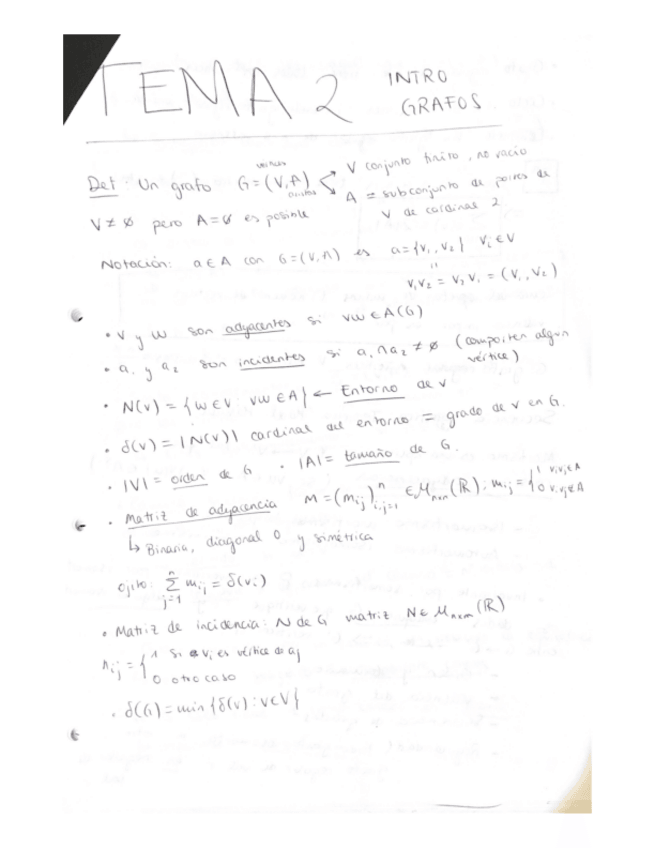 TEMA 2 INTRO
GRAFOS
Def: Un grafo G=(V,A) V conjunto finito, no vacio
aristas
A = subconjunto de pares de
V de cardinal 2
V≠∅ pero A=∅ es posible
Notación: a∈A con G=(V,A) es a={v₁,v₂} vᵢ∈V
v₁v₂ = v₂v₁ = (v₁,v₂)
• v y w son adyacentes si vw∈A(G)
• a₁ y a₂ son incidentes si a₁∩a₂≠∅ (comparten algun
vértice)
• N(v) = {w∈V: vw∈A} ← Entorno de v
• δ(v) = |N(v)| cardinal del entorno = grado de v en G.
• |V| = orden de G • |A| = tamaño de G.
• Matriz de adyacencia M=(mᵢⱼ)ⁿᵢ,ⱼ₌₁ ∈ℳₙₓₙ(ℝ): mᵢⱼ={1 vᵢvⱼ∈A
0 vᵢvⱼ∉A
↳ Binaria, diagonal 0 y simétrica
ojito: ∑ⁿⱼ₌₁ mᵢⱼ = δ(vᵢ)
• Matriz de incidencia: N de G matriz N∈ℳₙₓₘ(ℝ)
nᵢⱼ = {1 si vᵢ es vértice de aⱼ
0 otro caso
• δ(G) = min{δ(v): v∈V}